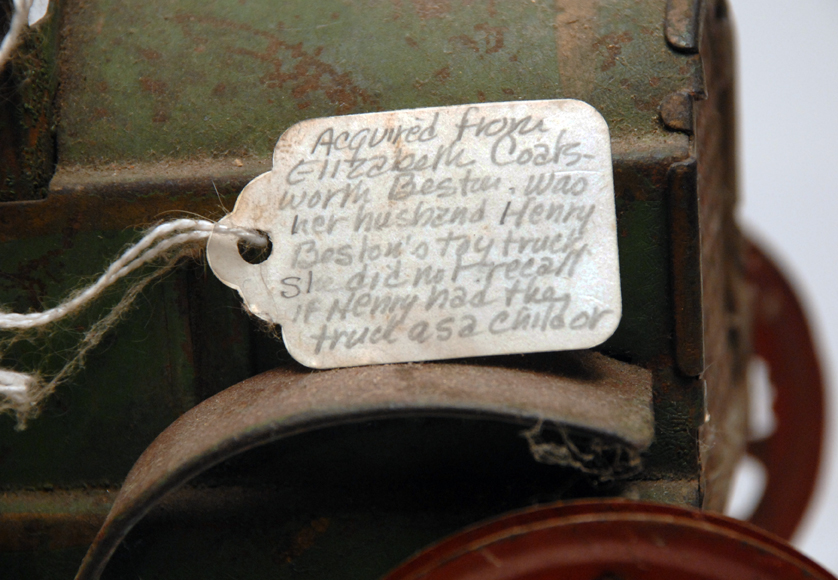 Acquired from
Elizabeth Coats-
worth Beston. Was
her husband Henry
Beston's toy truck
She did not recall
if Henry had the
truck as a child or